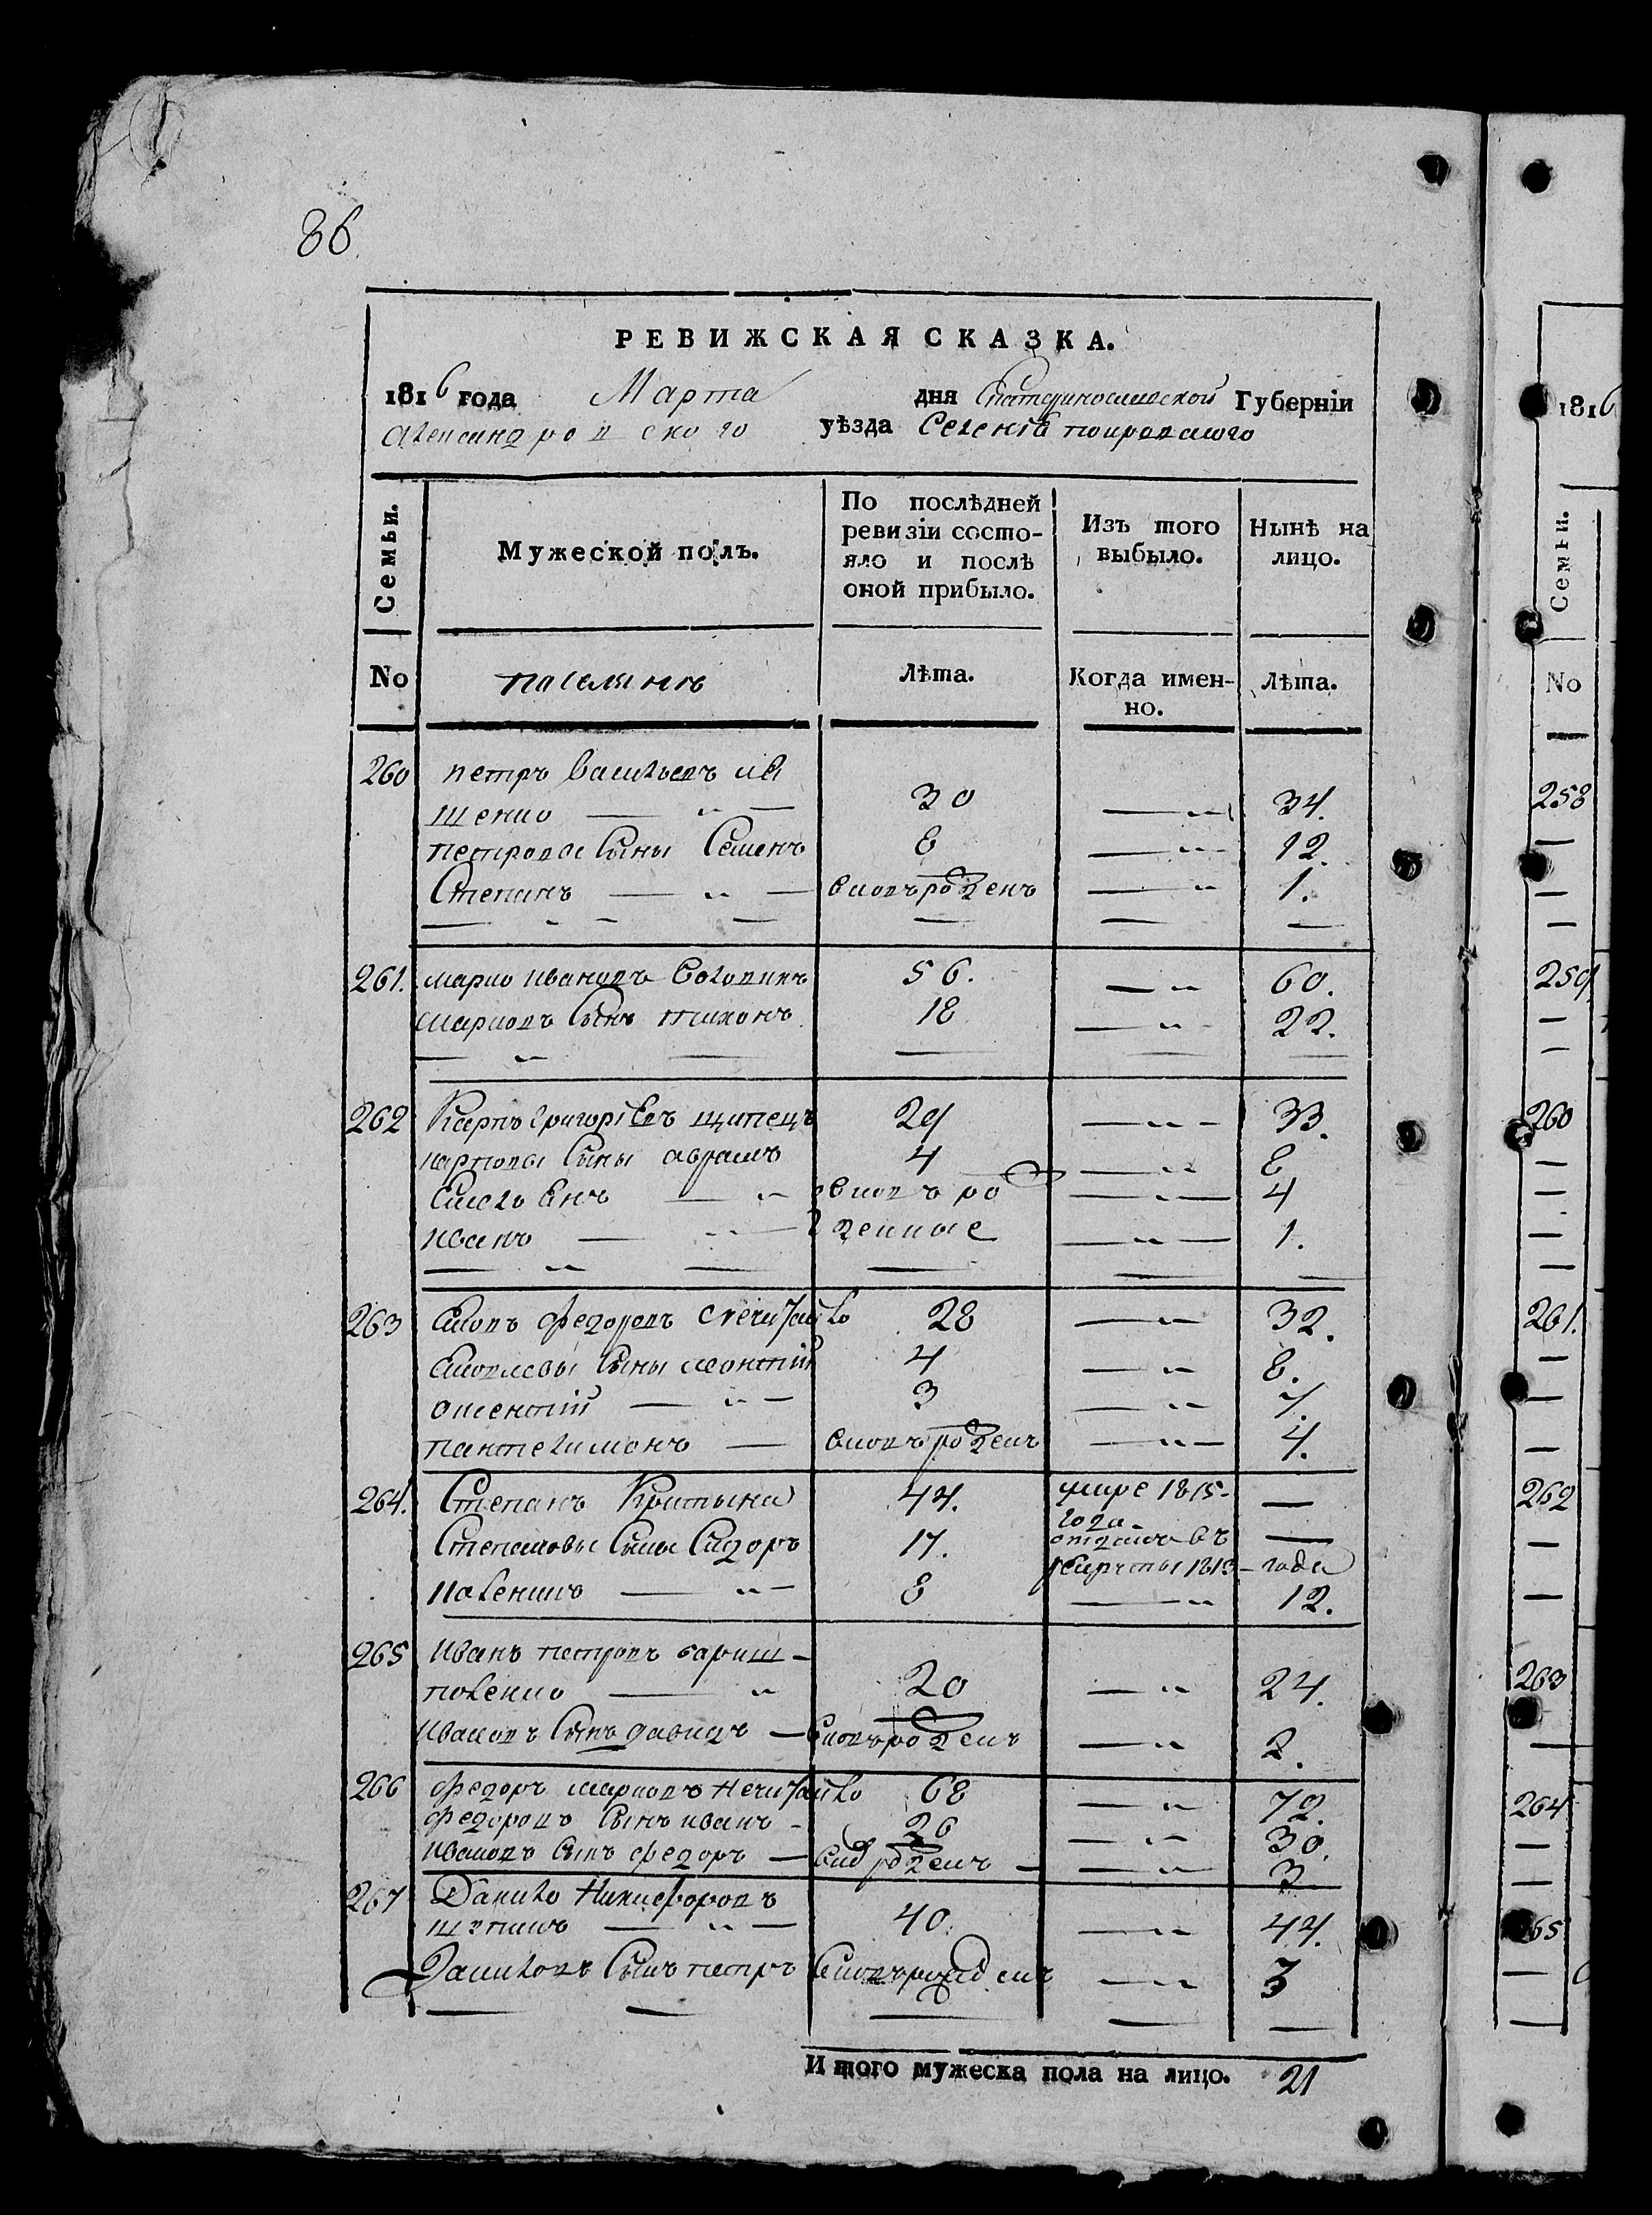 86.
РЕВИЖСКАЯ СКАЗКА.
1816 года Марта дня Екатеринославской Губерніи
Александровского уѣзда Селенія покровского
Семьи.
Мужеской полъ.
По послѣдней ревизіи состо-
яло и послѣ оной прибыло.
Изъ того выбыло.
Нынѣ на лицо.
No
Лѣта.
Когда имен-
но.
Лѣта.
260 петръ васильевъ
щенко 30 34.
петровы Сыны Семенъ 8 12.
Степанъ вновърожденъ 1.
261. марко ивановъ 56. 60.
марковъ Сынъ тихонъ 18 22.
262 Карпъ григорьевъ 29 33.
карповы Сыны аврамъ 4 8
вновь ро 4
иванъ жденные 1.
263 федоровъ 28 32.
Сыны леонтій 4 8.
3 7.
пантелимонъ вновърожденъ 4.
264. Степанъ 44. умре 1815-
года
Степановы Сыны Сидоръ 17. отданъ въ
рекруты 1813 года
8 12.
265 иванъ петровъ
ненко 20 24.
ивановъ Сынъ давидъ вновърожденъ 2.
266 федоръ марковъ нечитайло 68 72.
федоровъ Сынъ иванъ 26 30.
ивановъ Сынъ федоръ внов рожденъ 3
267 Данило Никифоровъ
40. 44.
Даниловъ Сынъ петръ вновърожденъ 3
Итого мужеска пола на лицо. 21
1816
Семьи.
No
258
259
260
261.
262
263
264
265